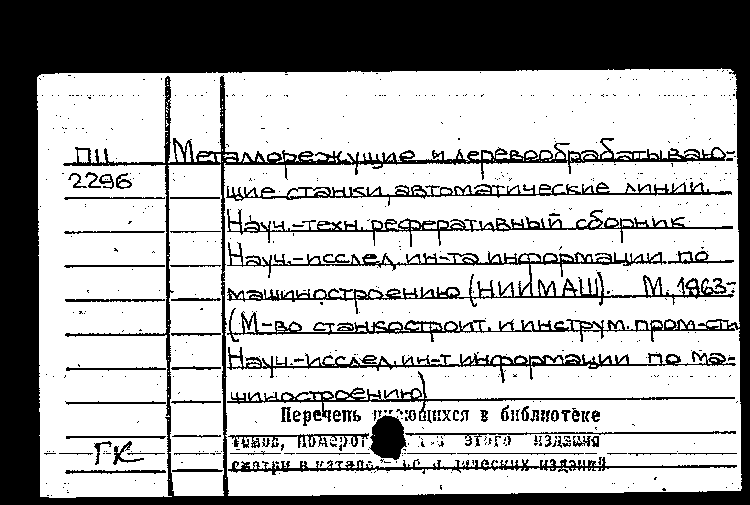 ПII Металлорежущие и деревообрабатываю-
2296 щие станки, автоматические линии.
Науч.-техн. реферативный сборник
Науч.-исслед. ин-та информации по
машиностроению (НИИМАШ). М., 1963-
(М-во станкостроит. и инструм. пром-сти
Науч.-исслед. ин-т информации по ма-
шиностроению)
Перечень имеющихся в библиотеке
томов, номеров этого издания
ГК смотри в изданий